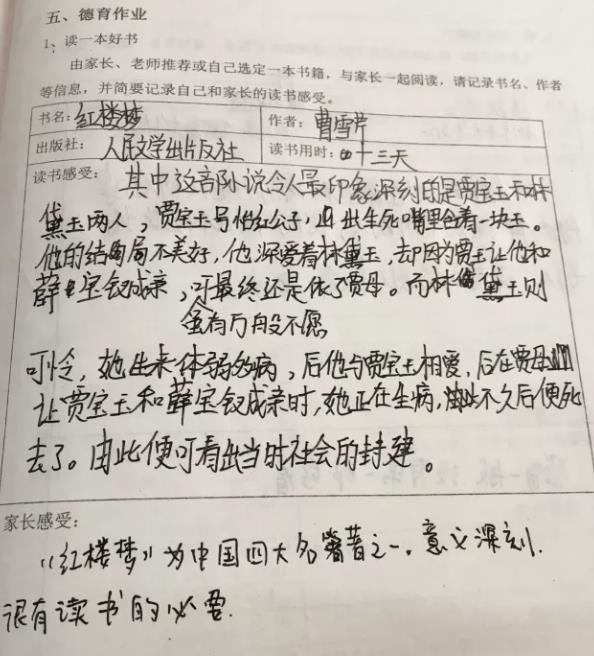 五、德育作业
1、读一本好书
由家长、老师推荐或自己选定一本书籍，与家长一起阅读，请记录书名、作者
等信息，并简要记录自己和家长的读书感受。
书名：红楼梦 作者：曹雪芹
出版社：人民文学出版社 读书用时：十三天
读书感受：其中这部小说令人最印象深刻的是贾宝玉和林
黛玉两人，贾宝玉号怡红公子，出生死嘴里含着一块玉。
他的结局不美好，他深爱着林黛玉，却因为贾王让他和
薛宝钗成亲，可最终还是依了贾母。而林黛玉则
虽有万般不愿
可怜，她出来体弱多病，后他与贾宝玉相爱，后在贾母
让贾宝玉和薛宝钗成亲时，她正在生病，不久后便死
去了。由此便可看出当时社会的封建。
家长感受：
《红楼梦》为中国四大名著之一。意义深刻.
很有读书的必要.